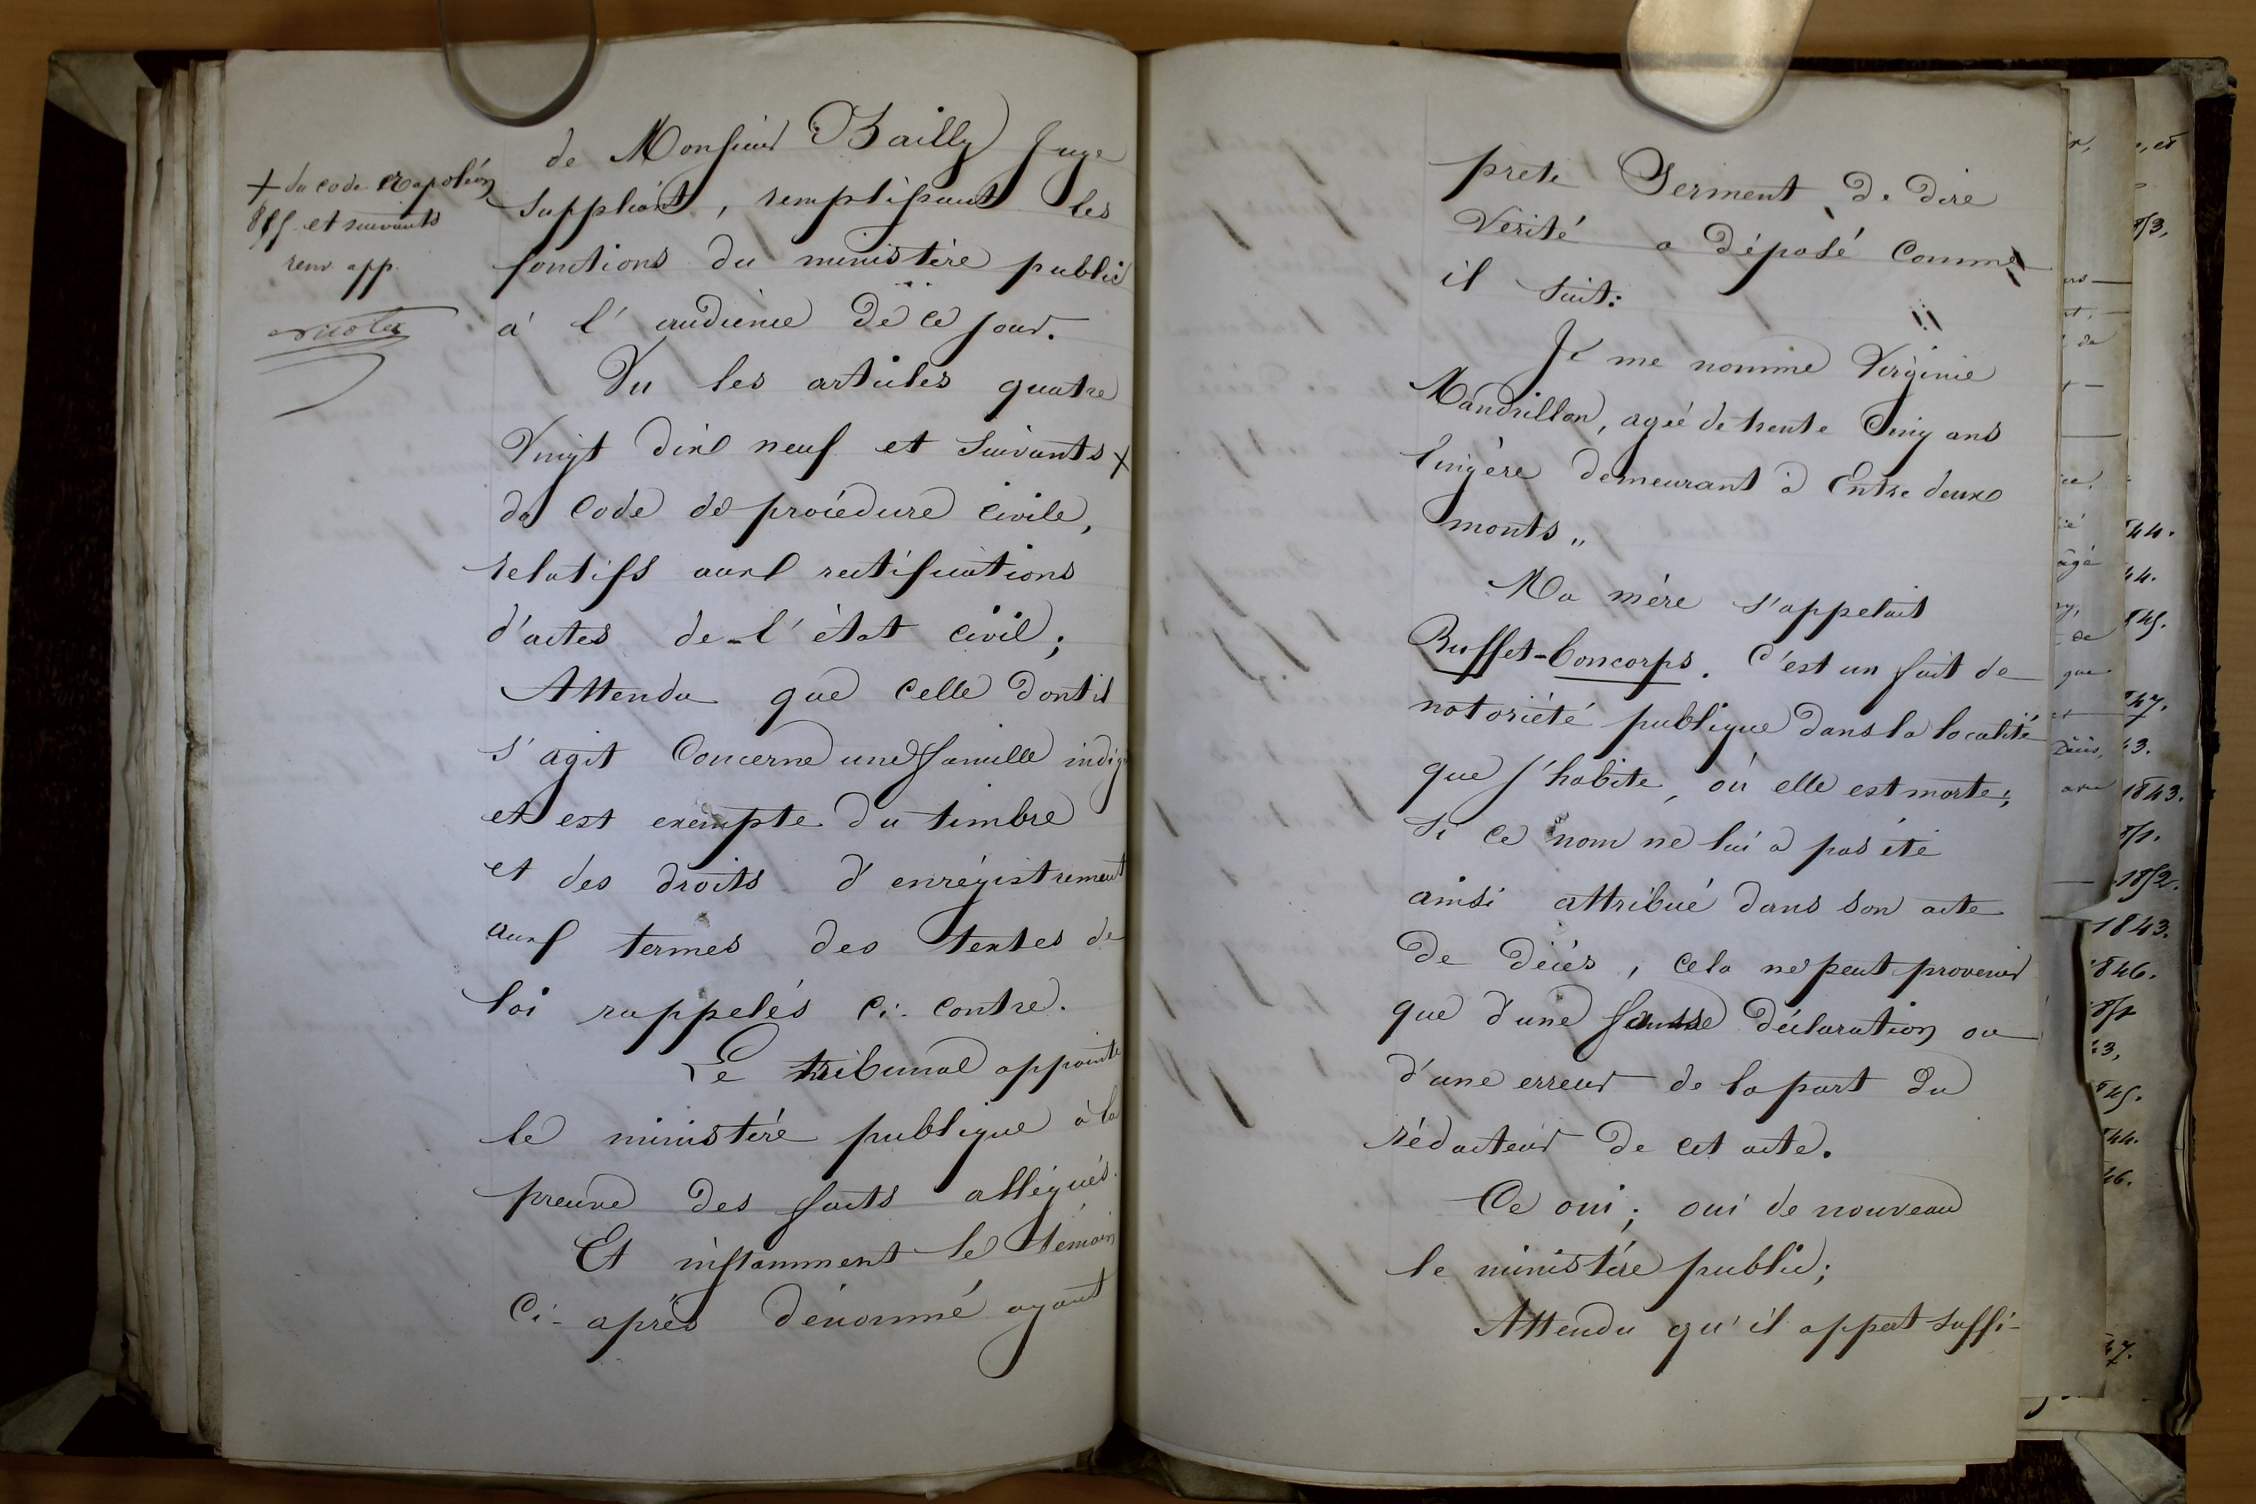 + du code Napoléon
855 et suivants
renv app.
de Monsieur Bailly Juge
Suppléant, remplissant les
fonctions du ministère public
à l'audience de ce jour.
Vu les articles quatre
Vingt dix neuf et Suivants +
du Code de procédure civile,
relatifs aux rectifications
d'actes de l'état civil;
Attendu que celle dont il
s'agit Concerne une famille indig
et est exempte du timbre
et des droits d'enrégistrement
aux termes des textes de
loi rappelés ci-contre.
Le tribunal appointe
le ministère publique à la
preuve des faits allégués.
Et instamment le témoin
Ci-après dénommé ayant
prété Serment de dire
Vérité a déposé Comme
il suit:
Je me nomme Virginie
Mandrillon, agée de trente Cinq ans
lingère demeurant à Entre deux
monts "
Ma mère s'appelait
Buffet-Concorps. C'est un fait de
notoriété publique dans la localité
que j'habite, où elle est morte;
Si ce nom ne lui a pas été
ainsi attribué dans son acte
De décès, cela ne peut provenir
que d'une fausse déclaration ou
d'une erreur de la part du
rédacteur de cet acte.
Ce oui; oui de nouveau
le ministère public;
Attendu qu'il appert suffi-
âgé
de
que
et
1843.
1852.
1843.
1846.